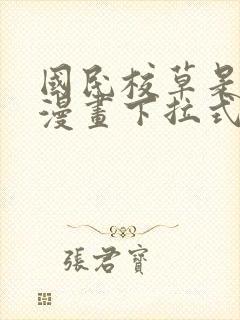 國民校草是
漫畫下拉式
張君寶